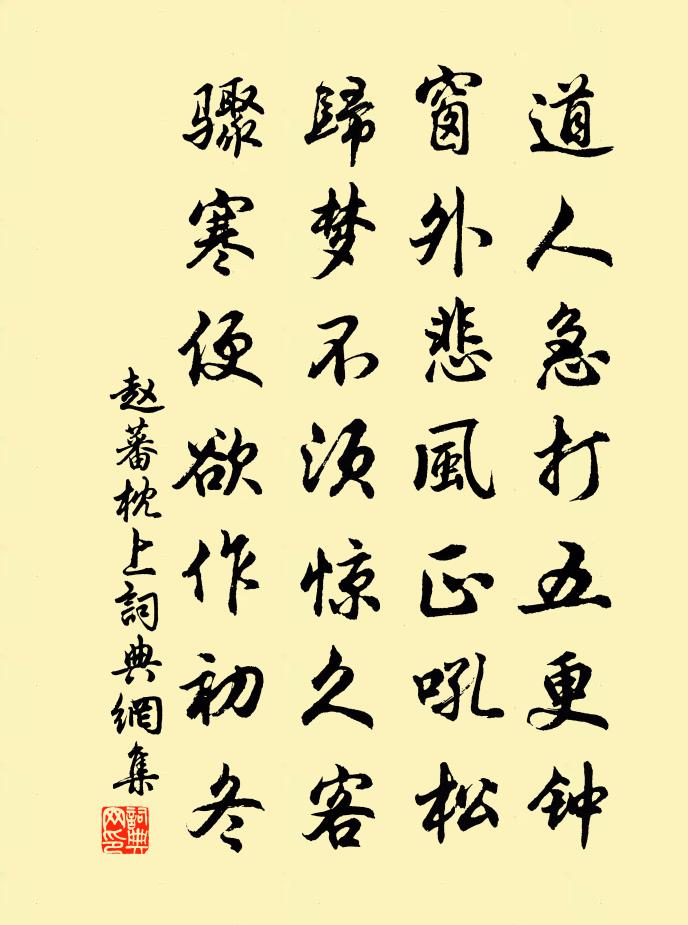 道人急打五更钟
窗外悲風正吼松
歸梦不须惊久客
骤寒便欲作初冬
赵蕃枕上詞典網集
詞典網印